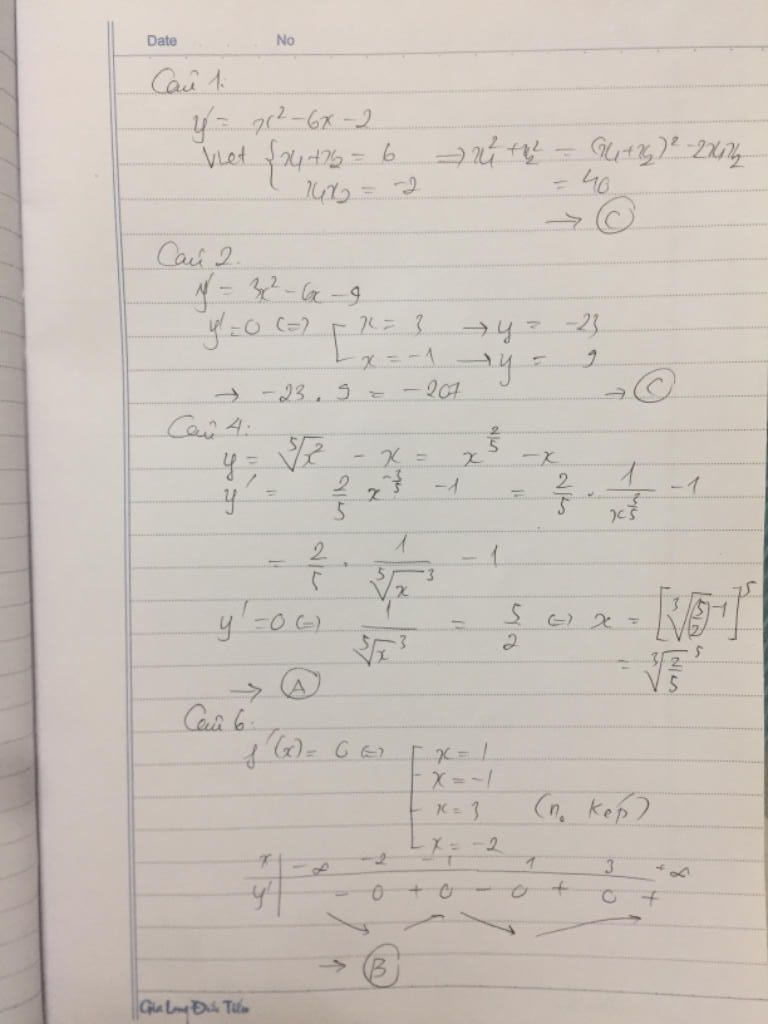 Date No
Câu 1:
y' = x² - 6x - 2
Viet { x₁ + x₂ = 6 ⇒ x₁² + x₂² = (x₁ + x₂)² - 2x₁x₂
x₁x₂ = -2 = 40
→ C
Câu 2.
y' = 3x² - 6x - 9
y' = 0 (=) [ x = 3 → y = -23
x = -1 → y = 9
→ -23 . 9 = -207 → C
Câu 4:
y = ⁵√x² - x = x^(2/5) - x
y' = 2/5 x^(-3/5) - 1 = 2/5 . 1/x^(3/5) - 1
= 2/5 . 1/⁵√x³ - 1
y' = 0 (=) 1/⁵√x³ = 5/2 (=) x = [³√(5/2)⁻¹]⁵
= ³√(2/5)⁵
→ A
Câu 6:
f'(x) = 0 (=) [ x = 1
x = -1
x = 3 (n. kép)
x = -2
x | -∞ -2 -1 1 3 +∞
y' | - 0 + 0 - 0 + 0 +
→ B
Gia Long Đức Tiến